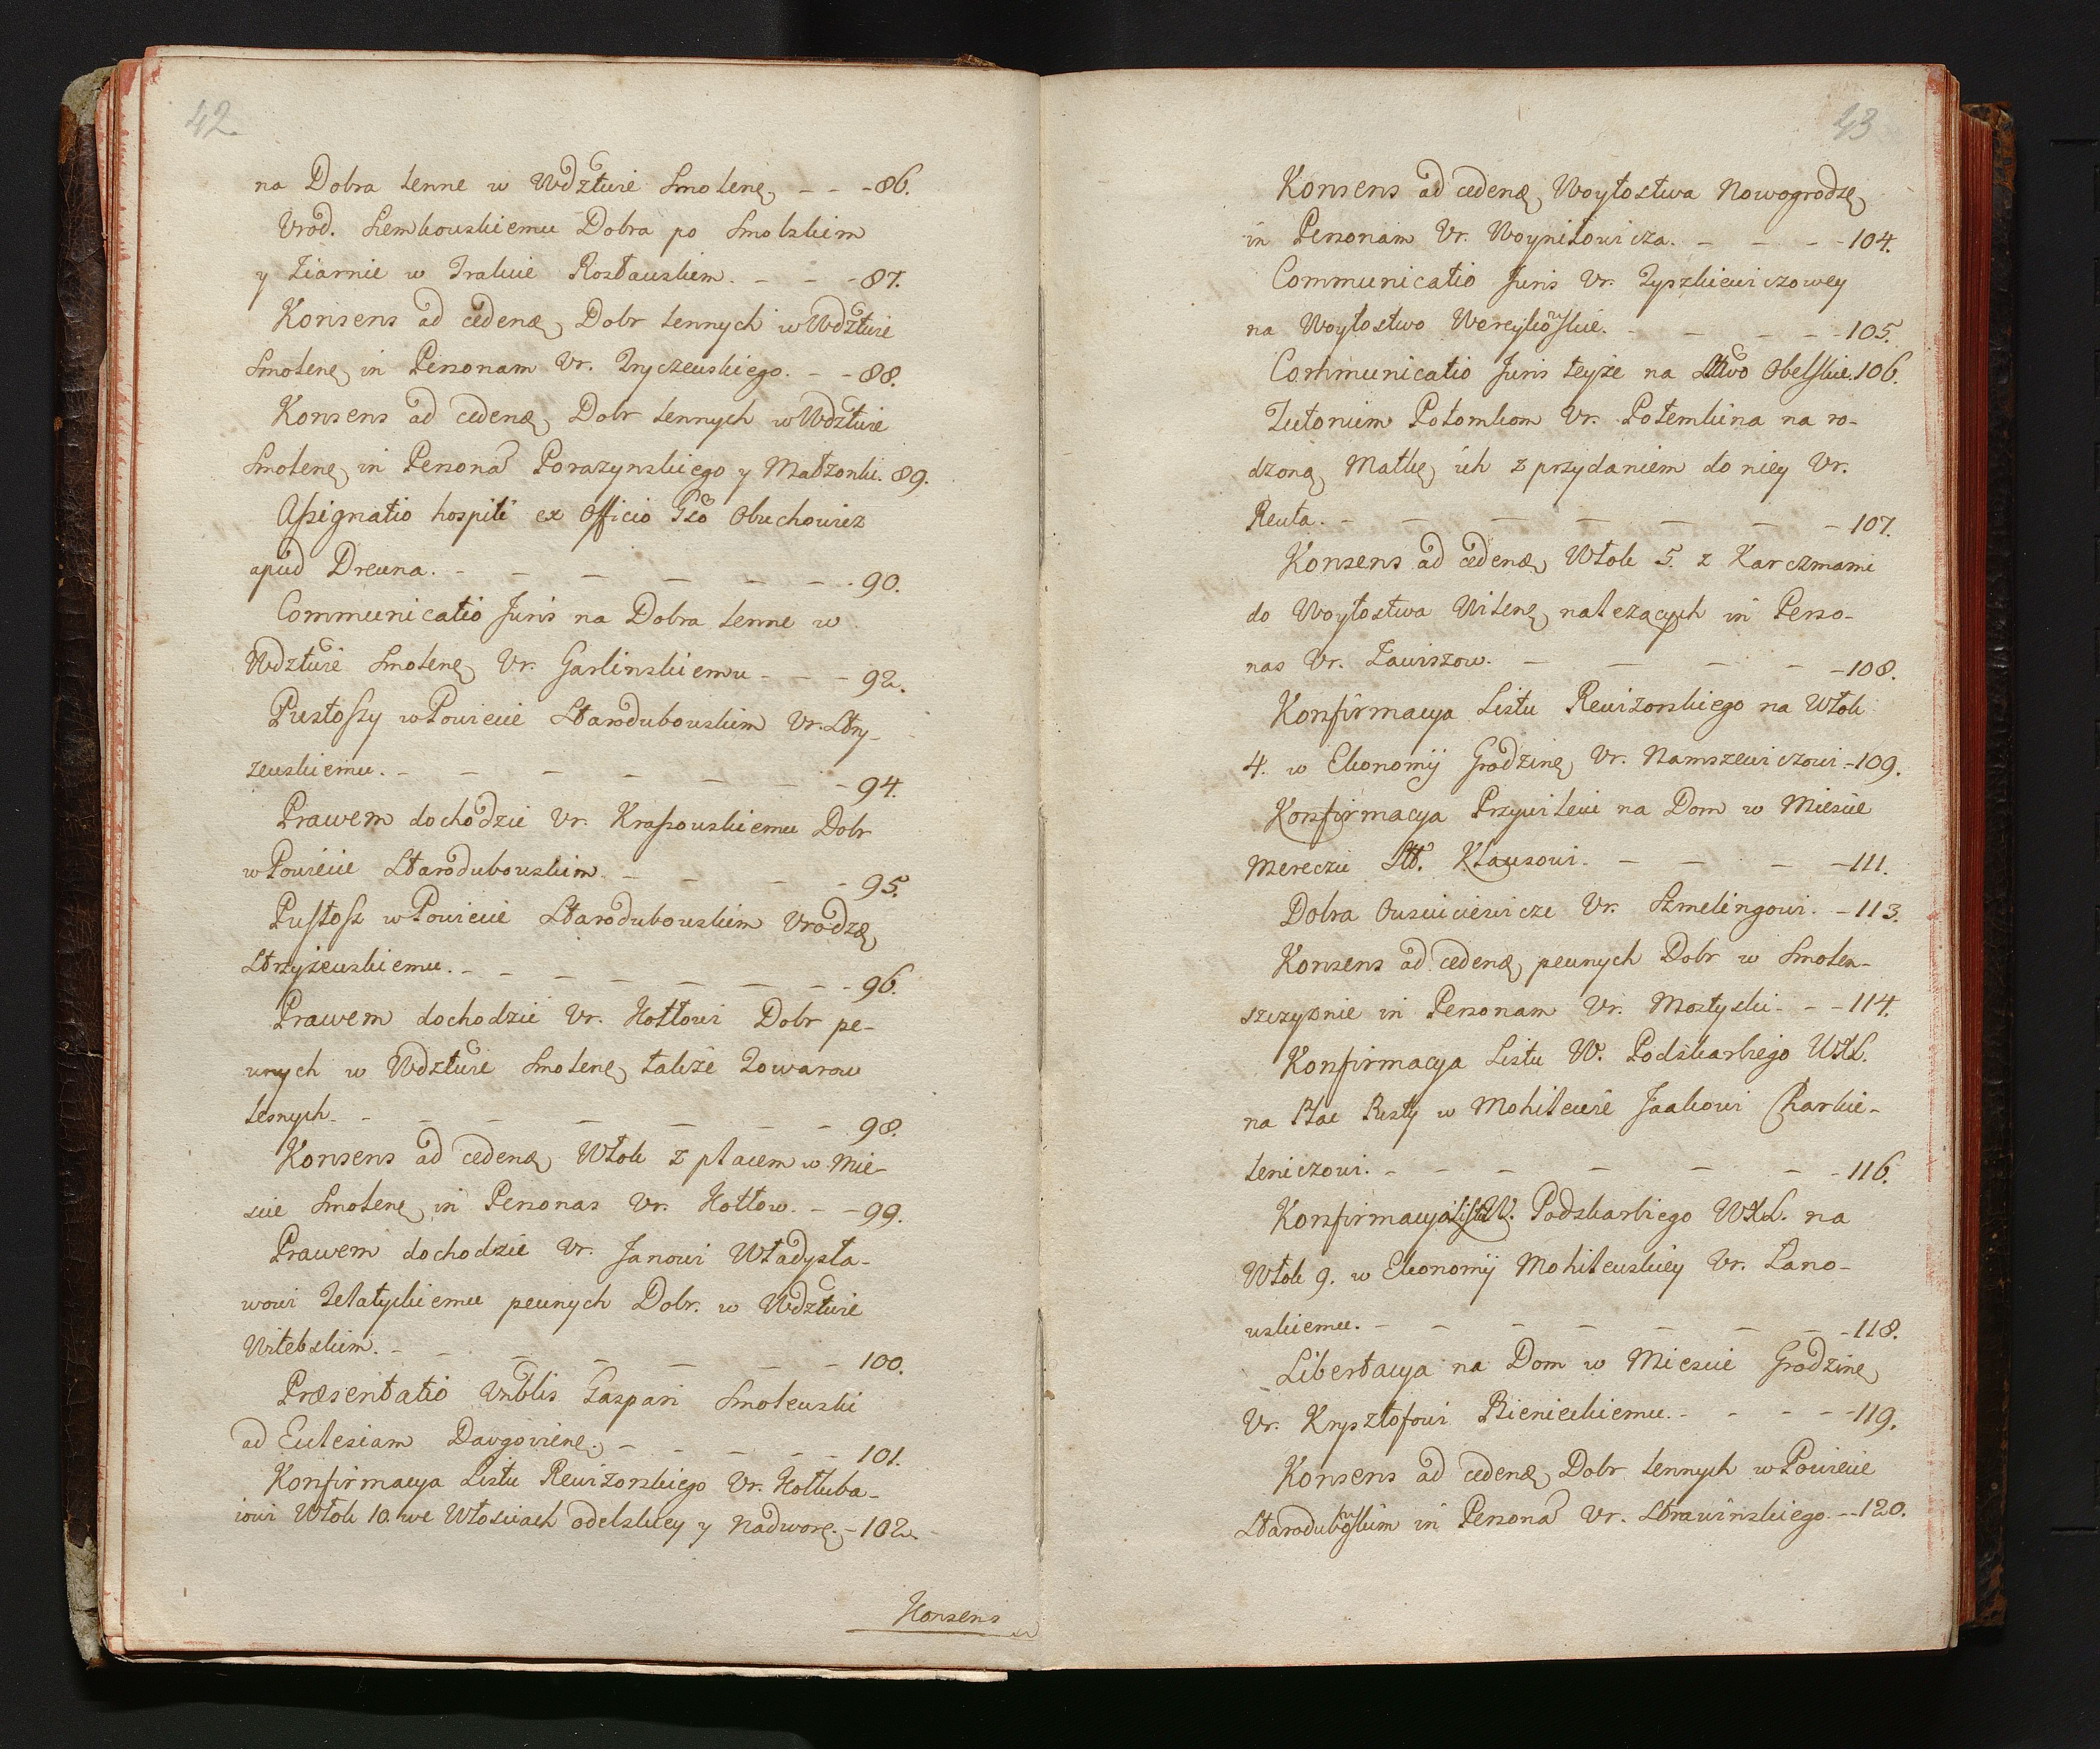 42.
na Dobra lenne w Wdztwie Smolenę - - - 86.
Urod. Siemkowskiemu Dobra po Smolskim
y Ziarnie w Trakcie Rosławskim. - - - 87.
Konsens ad cedenᶏ Dobr lennych w Wdztwie
Smolenę in Personam Ur. Tryczewskiego. - - 88.
Konsens ad cedenᶏ Dobr lennych w Wdztwie
Smolenę in Persona Porazynskiego y Małzonki. 89.
Assignatio hospitii ex Officio Gso Obuchowicz
apud Drewna. - - - - - - 90.
Communicatio Juris na Dobra lenne w
Wdztwie Smolenę Ur. Garlinskiemu - - - 92.
Pustoszy w Powiecie Starodubowskim Ur. Stry-
zewskiemu. - - - - - - 94.
Prawem dochodzić Ur. Krassowskiemu Dobr
w Powiecie Starodubowskim. - - - - 95.
Pustosz w Powiecie Starodubowskim Urodzę
Strzyżewskiemu. - - - - - - 96.
Prawem dochodzić Ur. Hołłowi Dobr pe-
wnych w Wdztwie Smolenę także Towarow
lesnych - - - - - - 98.
Konsens ad cedenᶏ Włok z placem w Mie-
scie Smolenę in Personas Ur. Hołłow. - - 99.
Prawem dochodzić Ur. Janowi Władysła-
wowi Zelatyckiemu pewnych Dobr. w Wdztwie
Witebskim. - - - - - - 100.
Præsentatio Vnblis Gaspari Smolewski
ad Ecclesiam Davgovienę. - - - - 101.
Konfirmacya Listu Rewizorskiego Ur. Hołłuba-
iowi Włok 10. we Włosciach odelskiey y Nadworę. - 102.
Konsens
43
Konsens ad cedenᶏ Woytostwa Nowogrodzę
in Personam Ur. Woyniłowicza. - - - - 104.
Communicatio Juris Ur. Tyszkiewiczowey
na Woytostwo Wereykowskie. - - - - 105.
Communicatio Juris teyże na Sttwo Obelskie. 106.
Tutorium Potomkom Ur. Potemkina na ro-
dzoną Matkę ich z przydaniem do niey Ur.
Reuta. - - - - - - - 107.
Konsens ad cedenᶏ Włok 5. z Karczmami
do Woytostwa Wilenę należących in Perso-
nas Ur. Zawiszow. - - - - - 108.
Konfirmacya Listu Rewizorskiego na Włok
4. w Ekonomij Grodzinę Ur. Namszewiczowi - 109.
Konfirmacya Przywileiu na Dom w Miescie
Mereczu Sltt. Klausowi. - - - - 111.
Dobra Owsciciewicze Ur. Szmelingowi. - 113.
Konsens ad cedenᶏ pewnych Dobr w Smolen-
szczyznie in Personam Ur. Mostycki - - - 114.
Konfirmacya Listu W. Podskarbiego WXL.
na Plac Pusty w Mohilewie Jaakowi Charkie-
leniczowi. - - - - - - 116.
Konfirmacya listu W. Podskarbiego WXL. na
Włok 9. w Ekonomij Mohilewskiey Ur. Łano-
wskiemu. - - - - - - - 118.
Libertacya na Dom w Miescie Grodzinę
Ur. Krysztofowi Bienieckiemu. - - - - 119.
Konsens ad cedenᶏ Dobr lennych w Powiecie
Starodubowskim in Persona Ur. Strawinskiego. - - 120.